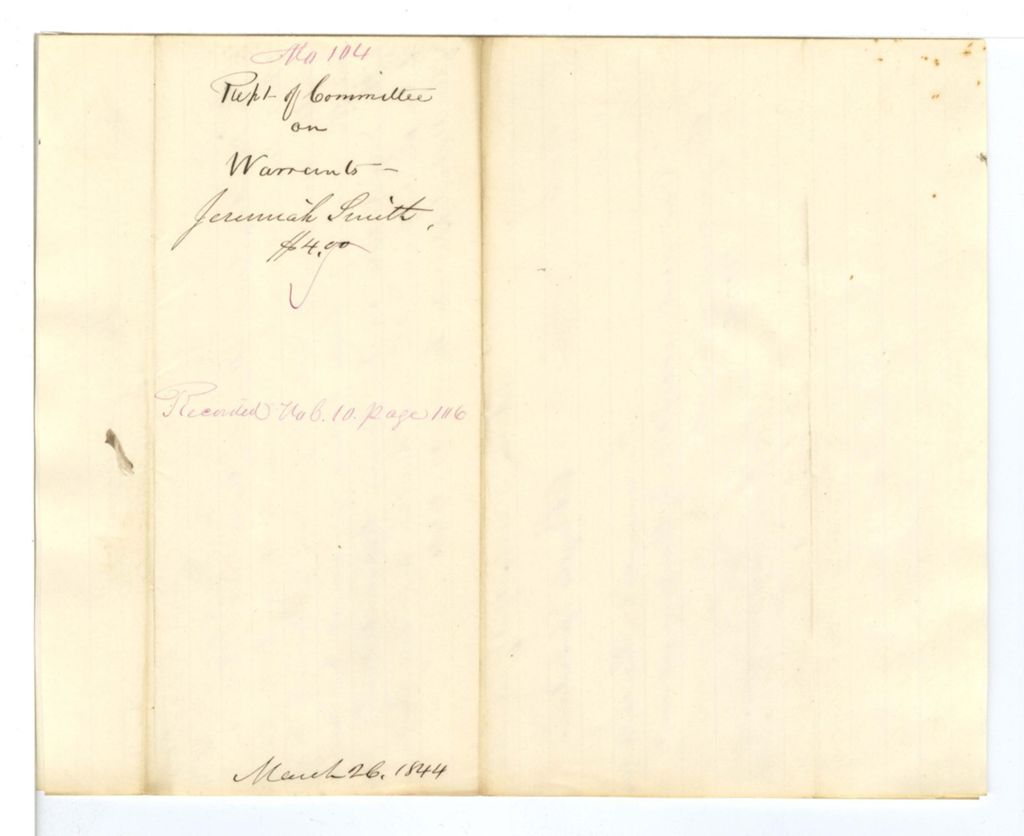 No 104
Rept of Committee
on
Warrants –
Jeremiah Smith,
$4.00
Recorded Vol. 10. page 106
March 26. 1844